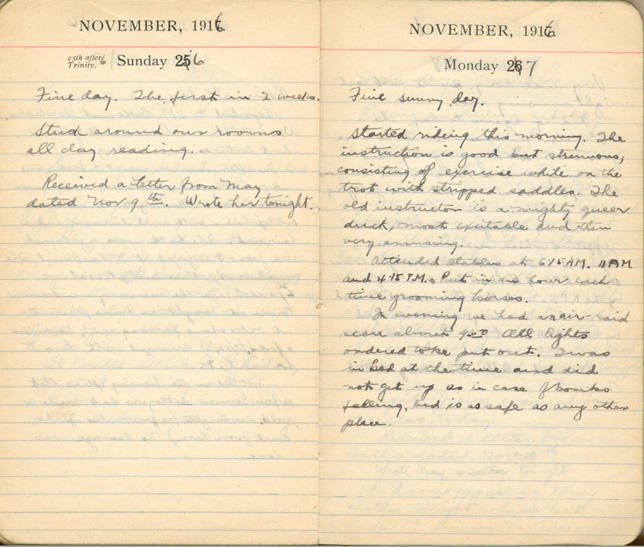 NOVEMBER, 1916
25th after Trinity. Sunday 26
Fine day. The first in 2 weeks.
Stuck around our rooms
all day reading.
Received a letter from May
dated Nov 9th. Wrote her tonight.
NOVEMBER, 1916
Monday 27
Fine sunny day.
Started riding this morning. The
instruction is good but strenuous,
consisting of exercise while on the
trot with stripped saddles. The
old instructor is a mighty queer
duck, most excitable and then
very amusing.
Attended stables at 6:15 AM. 11 AM
and 4:15 P.M. Put in an hour each
time grooming horses.
In evening we had an air-raid
scare about All lights
ordered to be put out. I was
in bed at the time and did
not get up as in case of bombs
falling, bed is as safe as any other
place.